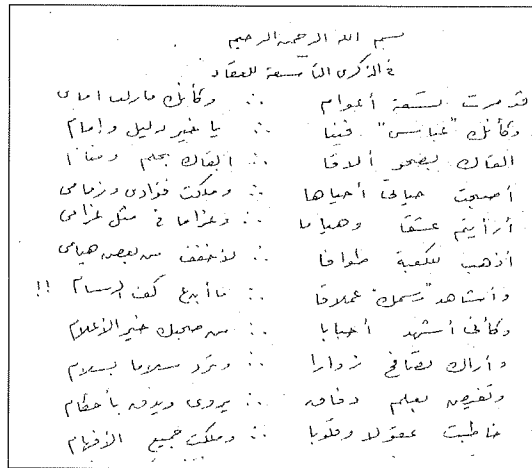 بسم الله الرحمن الرحيم
في الذكرى التاسعة للعقاد
قد مرت تسعة أعوام ∴ وكأنك مازلت أمامى
وكأنك "عباس" فينا ∴ يا خير دليل وإمام
ألقاك بصحو ألاقا ∴ ألقاك بحلم ومنام
أصبحت حياتى أحياها ∴ وملكت فؤادى وزمامى
أرأيتم عشقا وهياما ∴ وغراما فى مثل غرامى
أذهب للكعبة طوافا ∴ لأخفف من بعض هيامى
وأشاهد "رسمك" عملاقا ∴ ما أبدع كف الرسام !!
وكأنى أشهد أحبابا ∴ من صحبك خير الأعلام
وأراك تصافح زوارا ∴ وترد سلاما بسلام
وتفيض بعلم دفاق ∴ يروى ويدق بأحكام
خاطبت عقولا وقلوبا ∴ وملكت جميع الأفهام